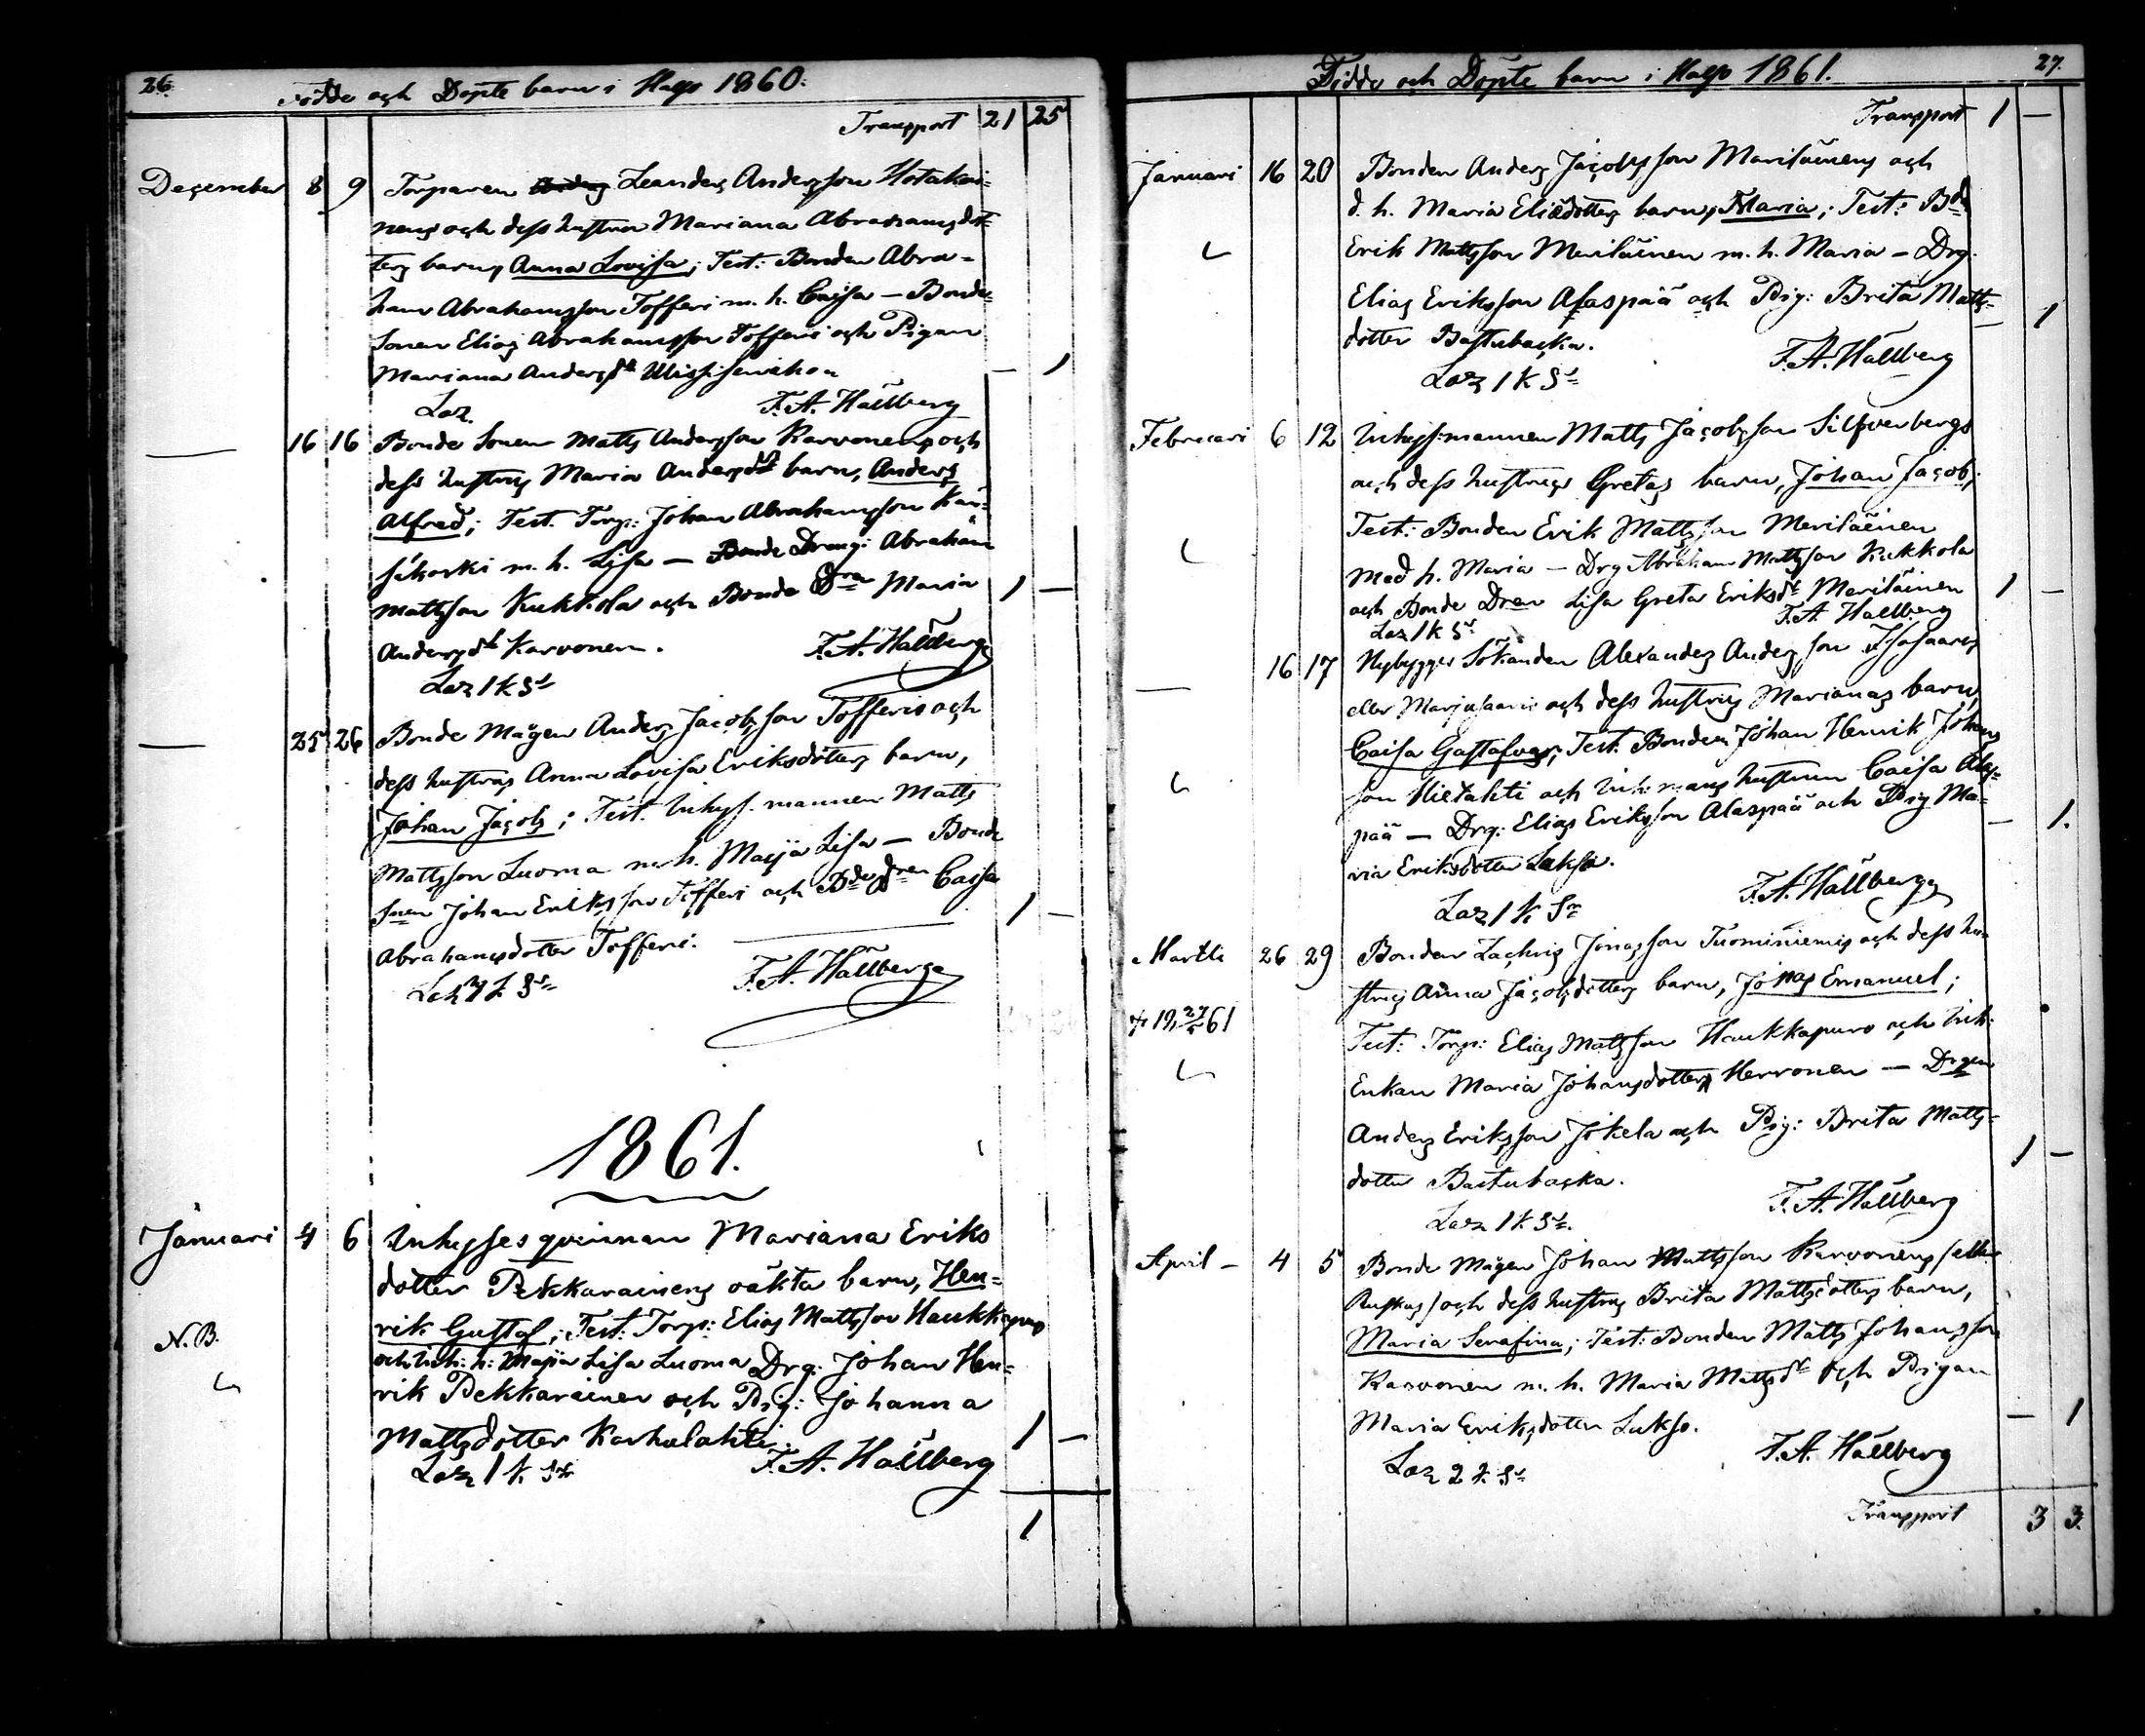 26.
Födde och Döpte barn i Halso 1860.
Transport 21 25
December 8 9 Torparen Leanders Andersson Hotakai-
nens och dess hustrus Mariana Abrahamsdot-
ters barn, Anna Lovisa; Test: Bonden Abra-
ham Abrahamsson Tofferi m. h. Caisa — Bonde
Sonen Elias Abrahamsson Tofferi och Pigan
Mariana Andersdr — 1
Laz. F. A. Hällberg
— 16 16 Bonde Sonen Matts Andersson Karvonens och
dess hustrus Maria Andersdrs barn, Anders
Alfred; Test. Torp: Johan Abrahamsson Kan-
m. h. Lisa — Bonde Dreng: Abraham
Mattsson Kukkola och Bonde Dren Maria 1 —
Andersdr Karvonen. F. A. Hällberg
Laz 1 k
— 25 26 Bonde Mågen Anders Jacobsson Tofferis och
dess hustrus Anna Lovisa Eriksdotters barn,
Johan Jacob; Test. Inhys. mannen Matts
Mattsson Luoma m. h. Maja Lisa — Bonde
Snen Johan Eriksson Tofferi och Bde Dren Caisa 1 —
Abrahamsdotter Tofferi.
F. A. Hällberg
1861.
Januari 4 6 Inhyses qvinnan Mariana Eriks
dotter Pekkarainens oäkta barn, Hen-
rik Gustaf; Test: Torp: Elias Mattsson Haukkapuro
N. B. och Inh: h: Maja Lisa Luoma Drg: Johan Hen-
rik Pekkarainen och Pig: Johanna
Mattsdotter Karhulahti. 1 —
Laz 1 k F. A. Hällberg
1
27.
Födde och Döpte barn i Halso 1861.
Transport 1 —
Januari 16 20 Bonden Anders Jacobsson Meriläinens och
d. h. Maria Eliedotters barn, Maria; Test: Bden
Erik Mattsson Meriläinen m. h. Maria — Drg.
Elias Eriksson Alaspää och Pig: Brita Matts-
dotter Bastubacka. — 1
Laz 1 k F. A. Hällberg
Februari 6 12 Inhys:mannen Matts Jacobsson Silfverbergs
och dess hustrus Gretas barn, Johan Jacob;
Test: Bonden Erik Mattsson Meriläinen
med h. Maria — Drg Abraham Mattsson Kukkola
och Bonde Dren Lisa Greta Eriksdr Meriläinen 1 —
Laz 1 k F. A. Hällberg
— 16 17 Nybygges Sökanden Alexanders Andersson
eller Marjusaaris och dess hustrus Marianas barn,
Caisa Gustafva; Test. Bonden Johan Henrik Johans
son Hietahti och Inh: mans hustrun Caisa Alas-
pää — Drg: Elias Eriksson Alaspää och Pig Ma-
ria Eriksdotter Lukso. — 1.
Laz 1 k F. A. Hällberg
Martii 26 29 Bonden Zachris Jonasson Tuominiemis och dess hu-
strus Anna Jacobsdotters barn, Jonas Emanuel;
Test: Torp: Elias Mattsson Haukkapuro och Inh:
Enkan Maria Johansdotter Herronen — Drgen
Anders Eriksson Jokela och Pig: Brita Matts-
dotter Bastubacka. 1 —
Laz 1 k F. A. Hällberg
April — 4 5 Bonde Mågen Johan Mattsson Karvonens /eller
Ruskas/ och dess hustrus Brita Mattsdotters barn,
Maria Serafina; Test: Bonden Matts Johansson
Karvonen m. h. Maria Mattsdr och Pigan
Maria Eriksdotter Lukso. — 1
Laz F. A. Hällberg
Transport 3 3.